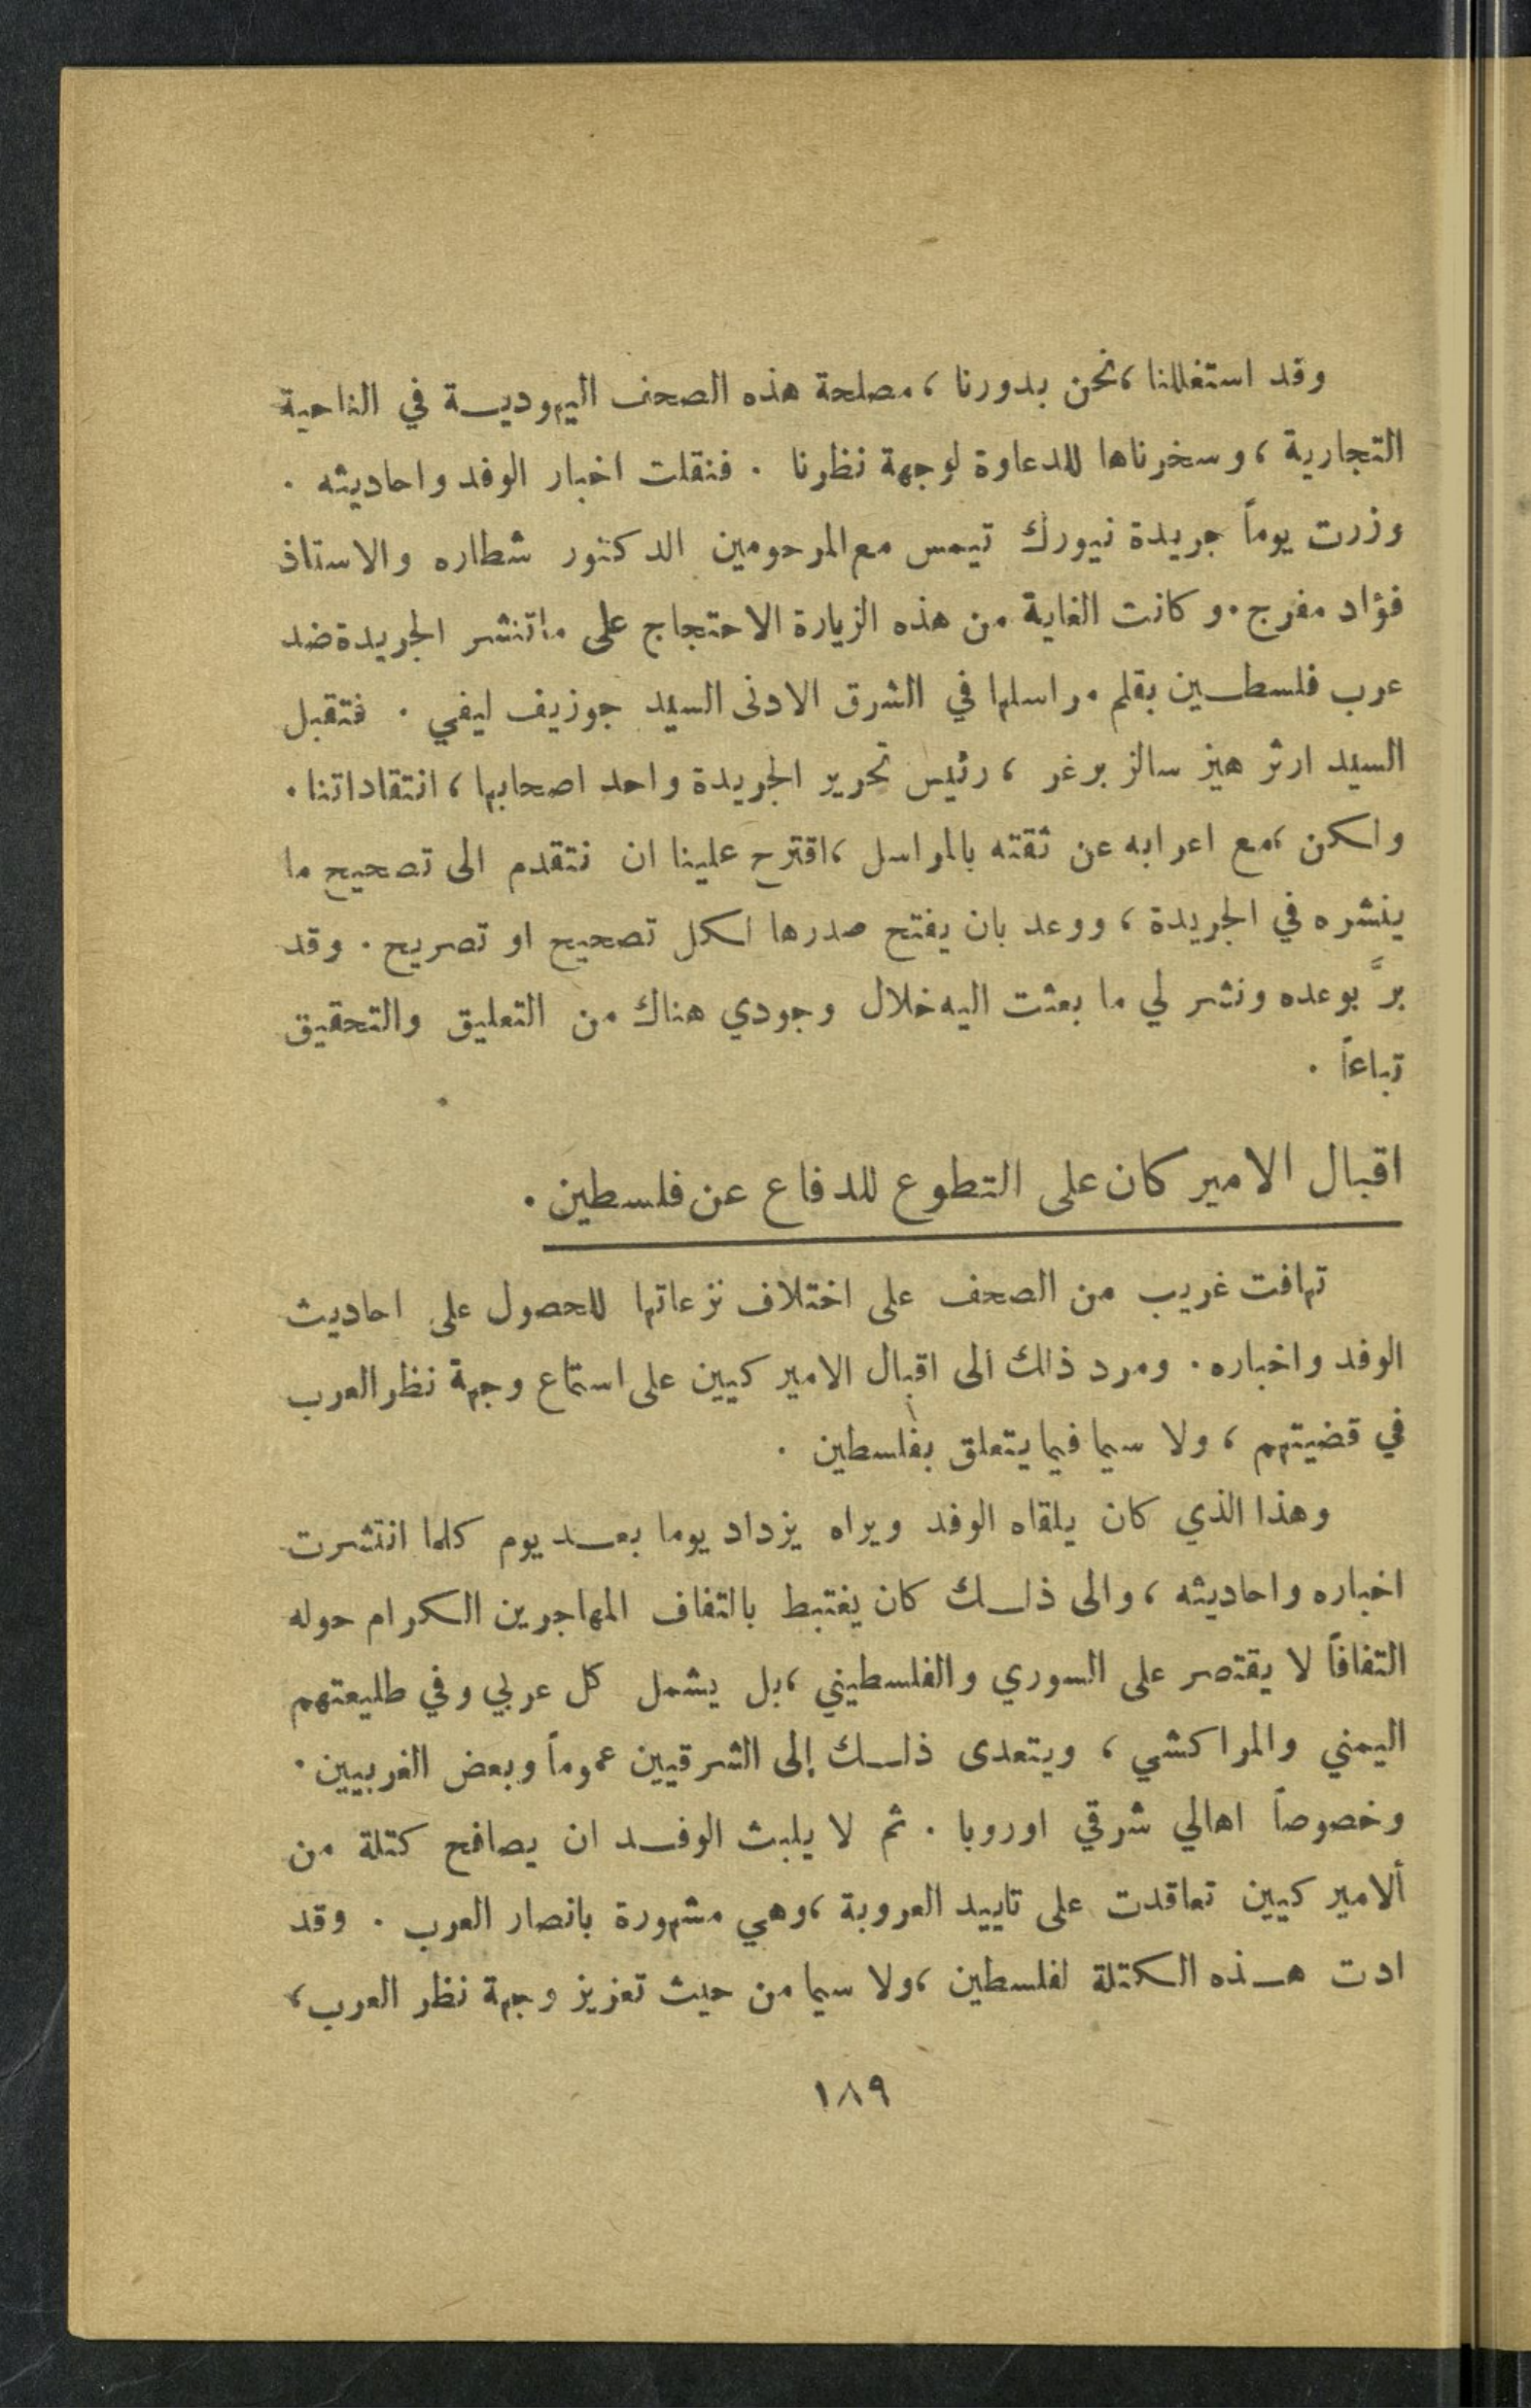 وقد استغللنا ، نحن بدورنا ، مصلحة هذه الصحف اليهوديـة في الناحية
التجارية ، وسخرناها للدعاوة لوجهة نظرنا . فنقلت اخبار الوفد واحاديثه .
وزرت يوماً جريدة نيورك تيمس مع المرحومين الدكتور شطاره والاستاذ
فؤاد مفرج . وكانت الغاية من هذه الزيارة الاحتجاج على ماتنشر الجريدة ضد
عرب فلسطـين بقلم مراسلها في الشرق الادنى السيد جوزيف ليفي . فتقبل
السيد ارثر هيز سالز برغر ، رئيس تحرير الجريدة واحد اصحابها ، انتقاداتنا .
ولكن ، مع اعرابه عن ثقته بالمراسل ، اقترح علينا ان نتقدم الى تصحيح ما
ينشره في الجريدة ، ووعد بان يفتح صدرها لكل تصحيح او تصريح . وقد
برَّ بوعده ونشر لي ما بعثت اليه خلال وجودي هناك من التعليق والتحقيق
تباعاً .
اقبال الامير كان على التطوع للدفاع عن فلسطين .
تهافت غريب من الصحف على اختلاف نزعاتها للحصول على احاديث
الوفد واخباره . ومرد ذالك الى اقبال الامير كيين على استماع وجهة نظر العرب
في قضيتهم ، ولا سيما فيما يتعلق بفلسطين .
وهذا الذي كان يلقاه الوفد ويراه يزداد يوما بعـد يوم كلما انتشرت
اخباره واحاديثه ، والى ذلـك كان يغتبط بالتفاف المهاجرين الكرام حوله
التفافاً لا يقتصر على السوري والفلسطيني ، بل يشمل كل عربي وفي طليعتهم
اليمني والمراكشي ، ويتعدى ذلـك إلى الشرقيين عموماً وبعض الغربيين .
وخصوصاً اهالي شرقي اوروبا . ثم لا يلبث الوفـد ان يصافح كتلة من
ألامير كيين تعاقدت على تاييد العروبة ، وهي مشهورة بانصار العرب . وقد
ادت هـذه الكتلة لفلسطين ، ولا سيما من حيث تعزيز وجهة نظر العرب ،
١٨٩